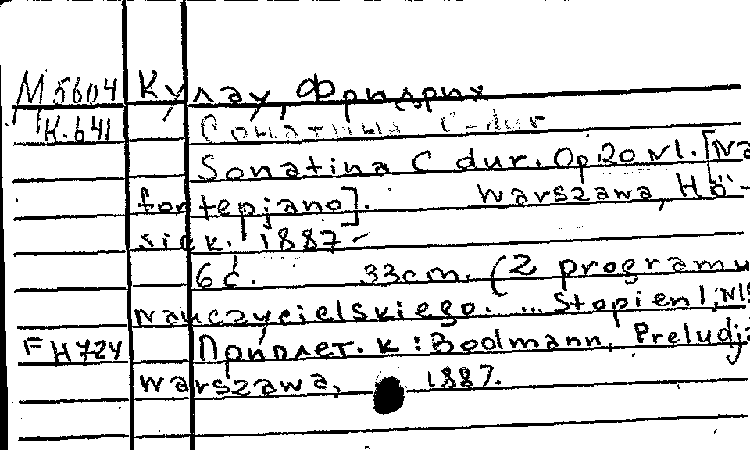 М 5604 Кулау, Фридрих
К.641 Сонатина C-dur
Sonatina C dur. Op 20 N1. [Na
fortepjano]. Warszawa, Hö-
sick. 1887-
6 с. 33cm. (Z programu
nauczycielskiego. ... Stopien I, N18
FH724 Приплет. к: Boolmann, Preludja
Warszawa, 1887.